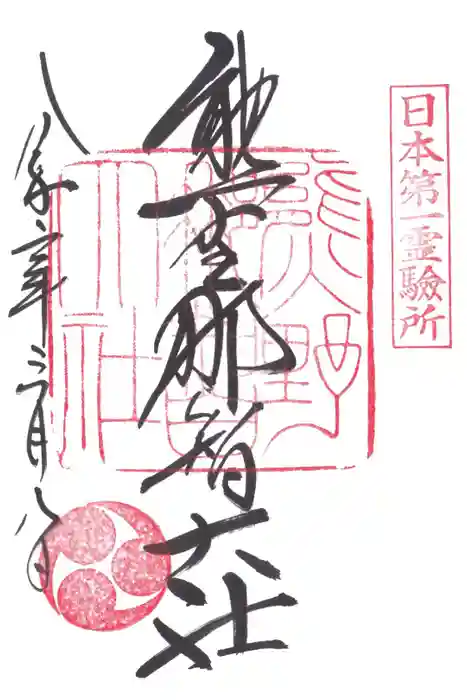 日本第一霊驗所
熊野那智大社
熊野
那智
大社
年二月八日